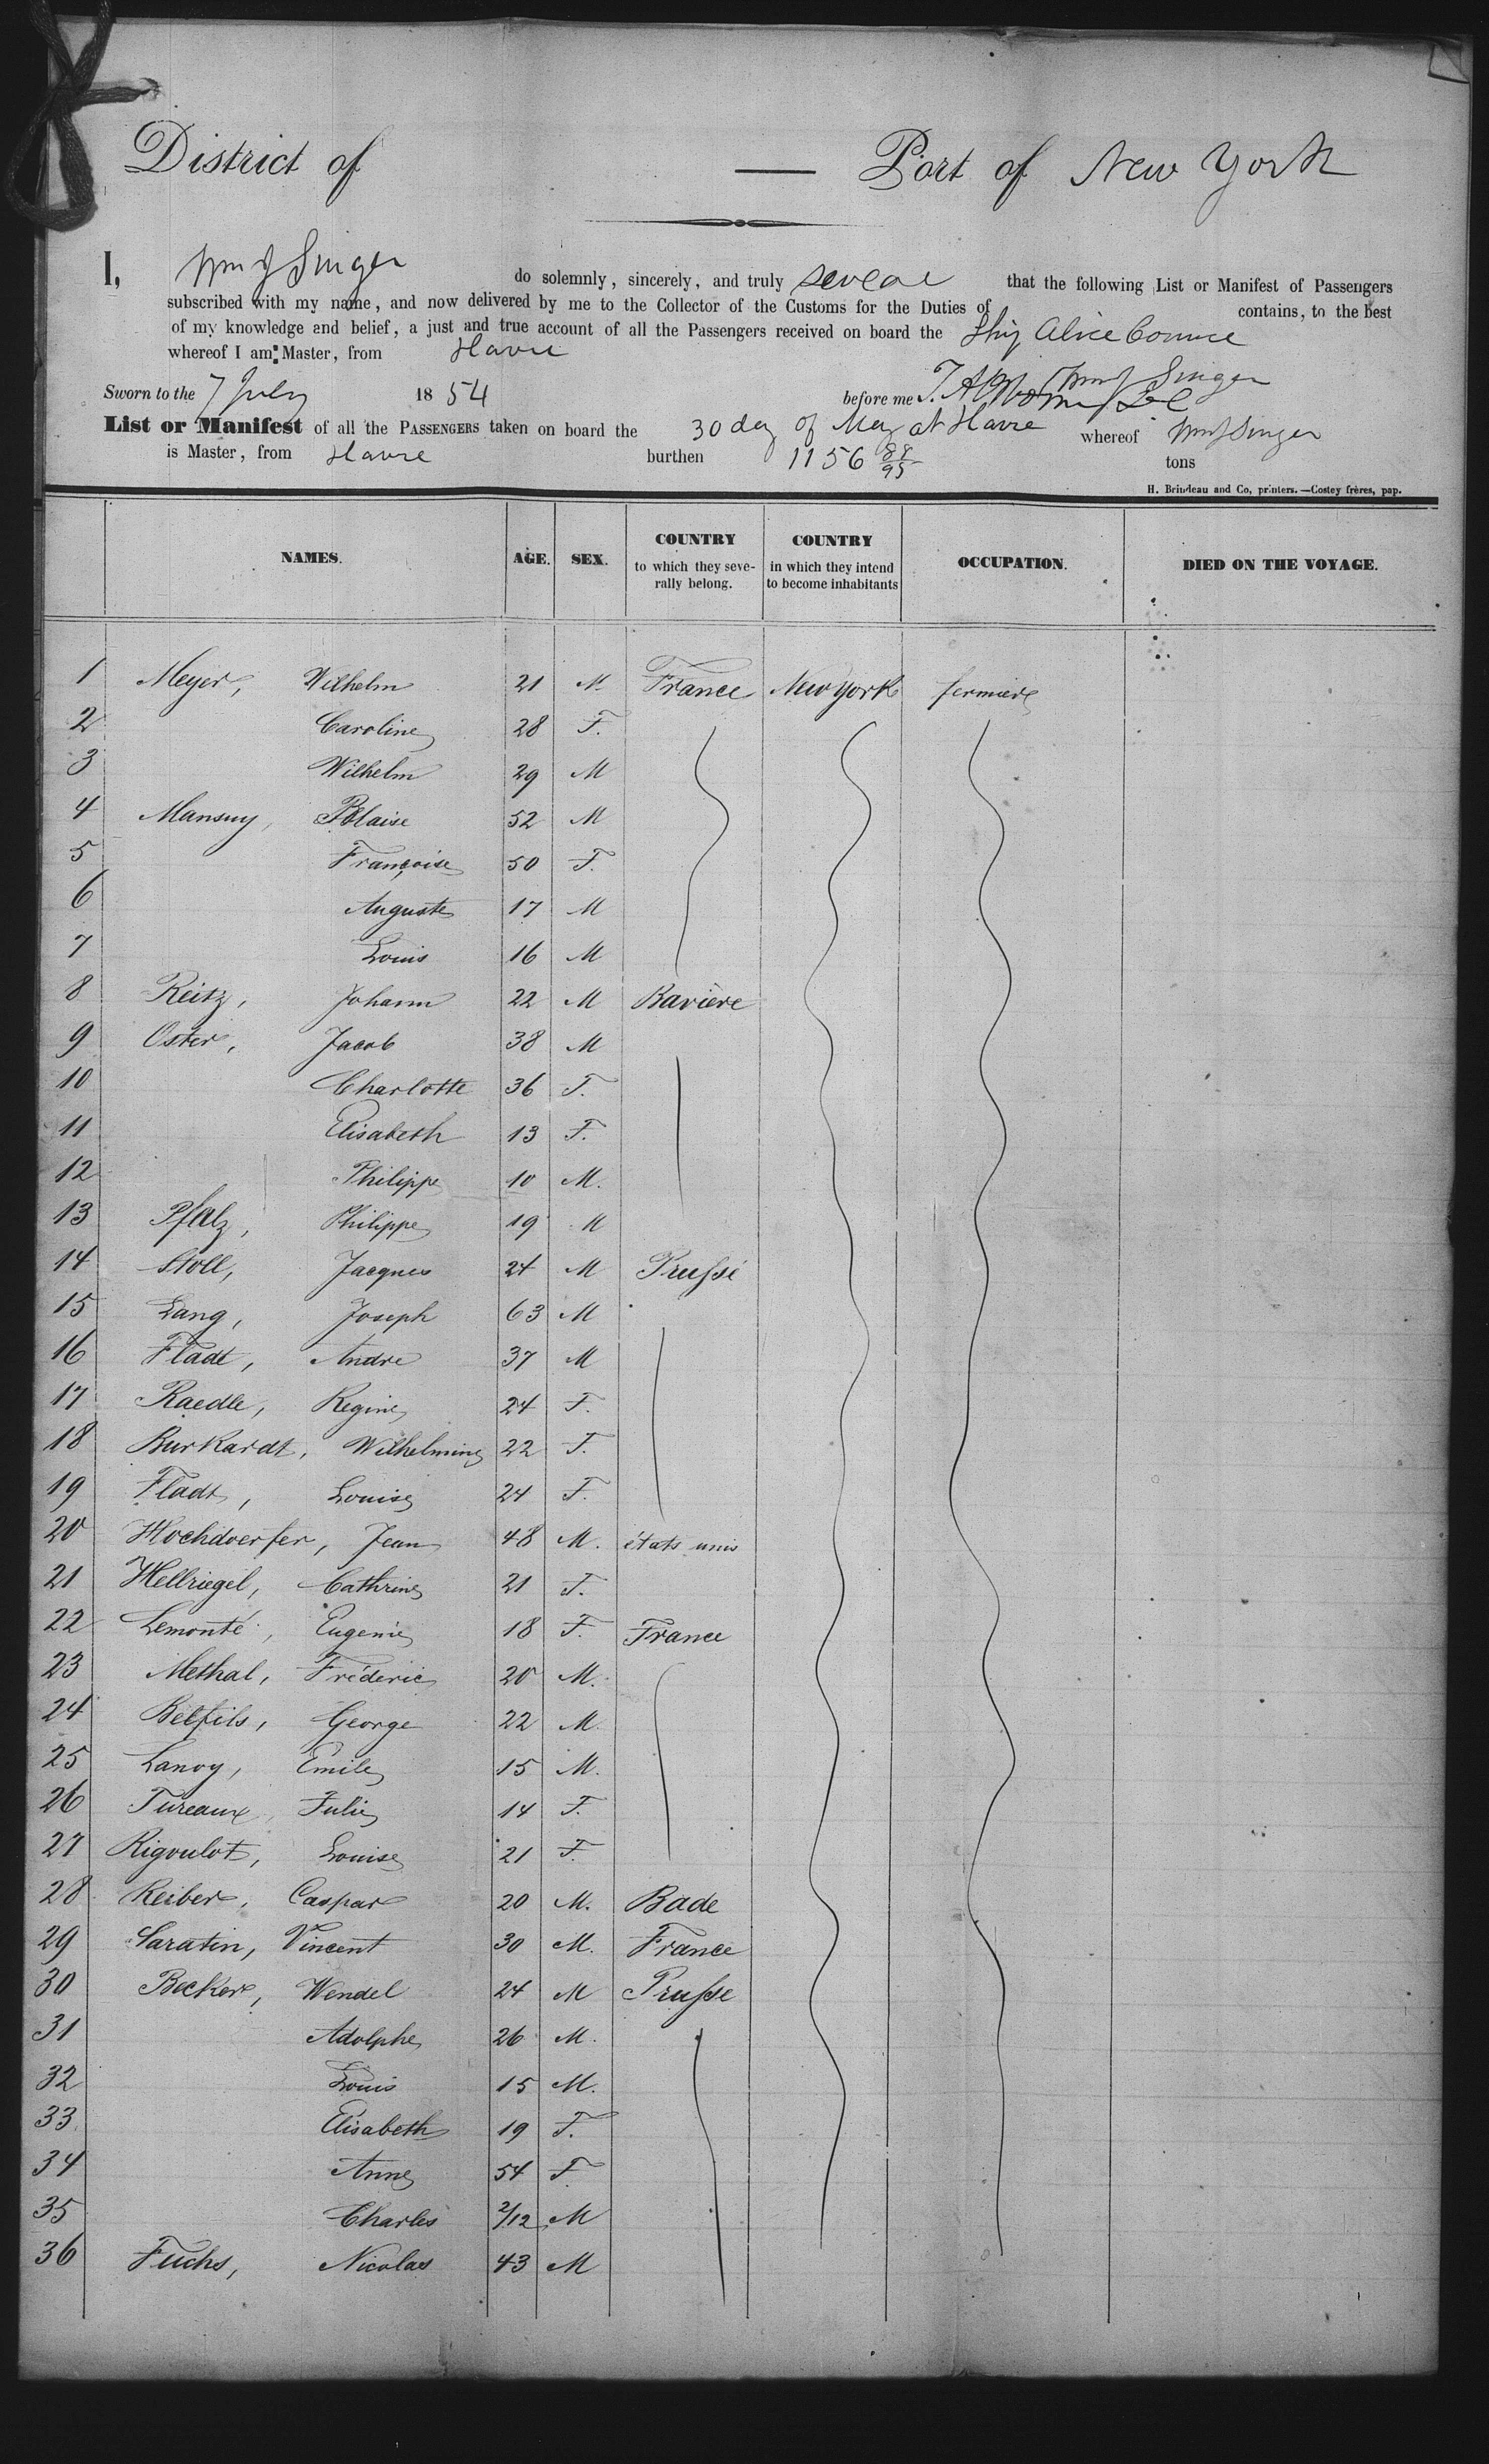 District of — Port of New York
I, Wm J Singer do solemnly, sincerely, and truly swear that the following List or Manifest of Passengers
subscribed with my name, and now delivered by me to the Collector of the Customs for the Duties of contains, to the best
of my knowledge and belief, a just and true account of all the Passengers received on board the Ship Alice
whereof I am Master, from Havre
Wm J Singer
Sworn to the 7 July 1854 before me
List or Manifest of all the PASSENGERS taken on board the 30 day of May at Havre whereof Wm J Singer
is Master, from Havre burthen 1156 88/95 tons
H. Brindeau and Co, printers. —Costey frères, pap.
NAMES. AGE. SEX. COUNTRY to which they seve-rally belong. COUNTRY in which they intend to become inhabitants OCCUPATION. DIED ON THE VOYAGE.
1 Meyer, Wilhelm 21 M. France New York fermiere
2 Caroline 28 F.
3 Wilhelm 29 M
4 Mansuy, Blaise 52 M
5 Françoise 50 F.
6 Auguste 17 M
7 Louis 16 M
8 Reitz, Johann 22 M Bavière
9 Oster, Jacob 38 M
10 Charlotte 36 F.
11 Elisabeth 13 F.
12 Philippe 10 M.
13 Pfalz, Philippe 19 M
14 Stoll, Jacques 24 M Prusse
15 Lang, Joseph 63 M
16 Fladt, Andre 37 M
17 Raedle, Regine 24 F.
18 Burkardt, Wilhelmine 22 F.
19 Fladt, Louise 24 F.
20 Hochdoerfer, Jean 48 M. états unis
21 Hellriegel, Cathrine 21 F.
22 Lemonté, Eugenie 18 F. France
23 Methal, Fréderic 20 M.
24 Belfils, George 22 M.
25 Lanoy, Emile 15 M.
26 Tureaux, Julie 14 F.
27 Rigoulot, Louise 21 F.
28 Reiber, Caspar 20 M. Bade
29 Saratin, Vincent 30 M. France
30 Becker, Wendel 24 M Prusse
31 Adolphe 26 M.
32 Louis 15 M.
33 Elisabeth 19 F.
34 Anne 54 F
35 Charles 2/12 M
36 Fuchs, Nicolas 43 M